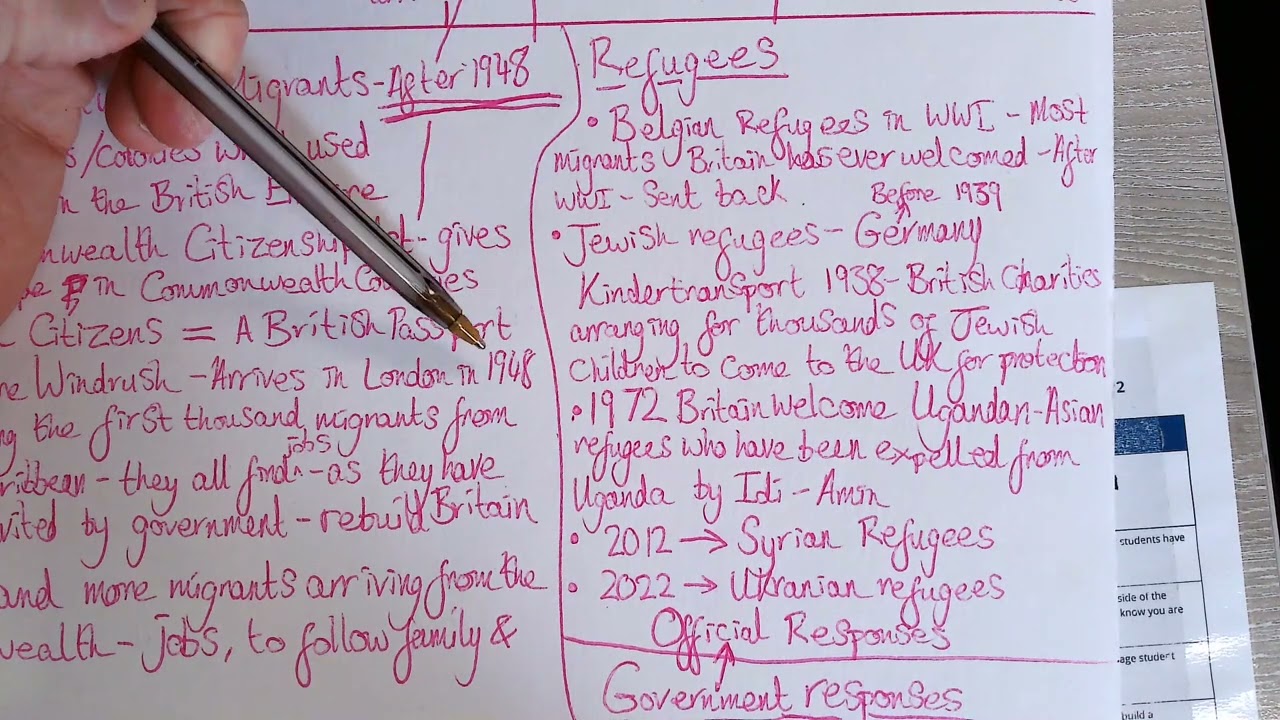 Migrants-After 1948
s/Colonies used
n the British
nwealth Citizenship - gives
in Commonwealth
Citizens = A British Passport
Windrush - Arrives in London in 1948
the first thousand migrants from
jobs
ribbean - they all find - as they have
vited by government - rebuild Britain
and more migrants arriving from the
wealth - jobs, to follow family &
Refugees
• Belgian Refugees in WWI - Most
migrants Britain has ever welcomed - After
WWI - Sent back.
Before 1939
• Jewish refugees - Germany
Kindertransport 1938 - British Charities
arranging for thousands of Jewish
Children to Come to the UK for protection
• 1972 Britain welcome Ugandan-Asian
refugees who have been expelled from
Uganda by Idi-Amin
• 2012 → Syrian Refugees
• 2022 → Ukranian refugees
Official Responses
Government responses
2
students have
side of the
know you are
age student
build a